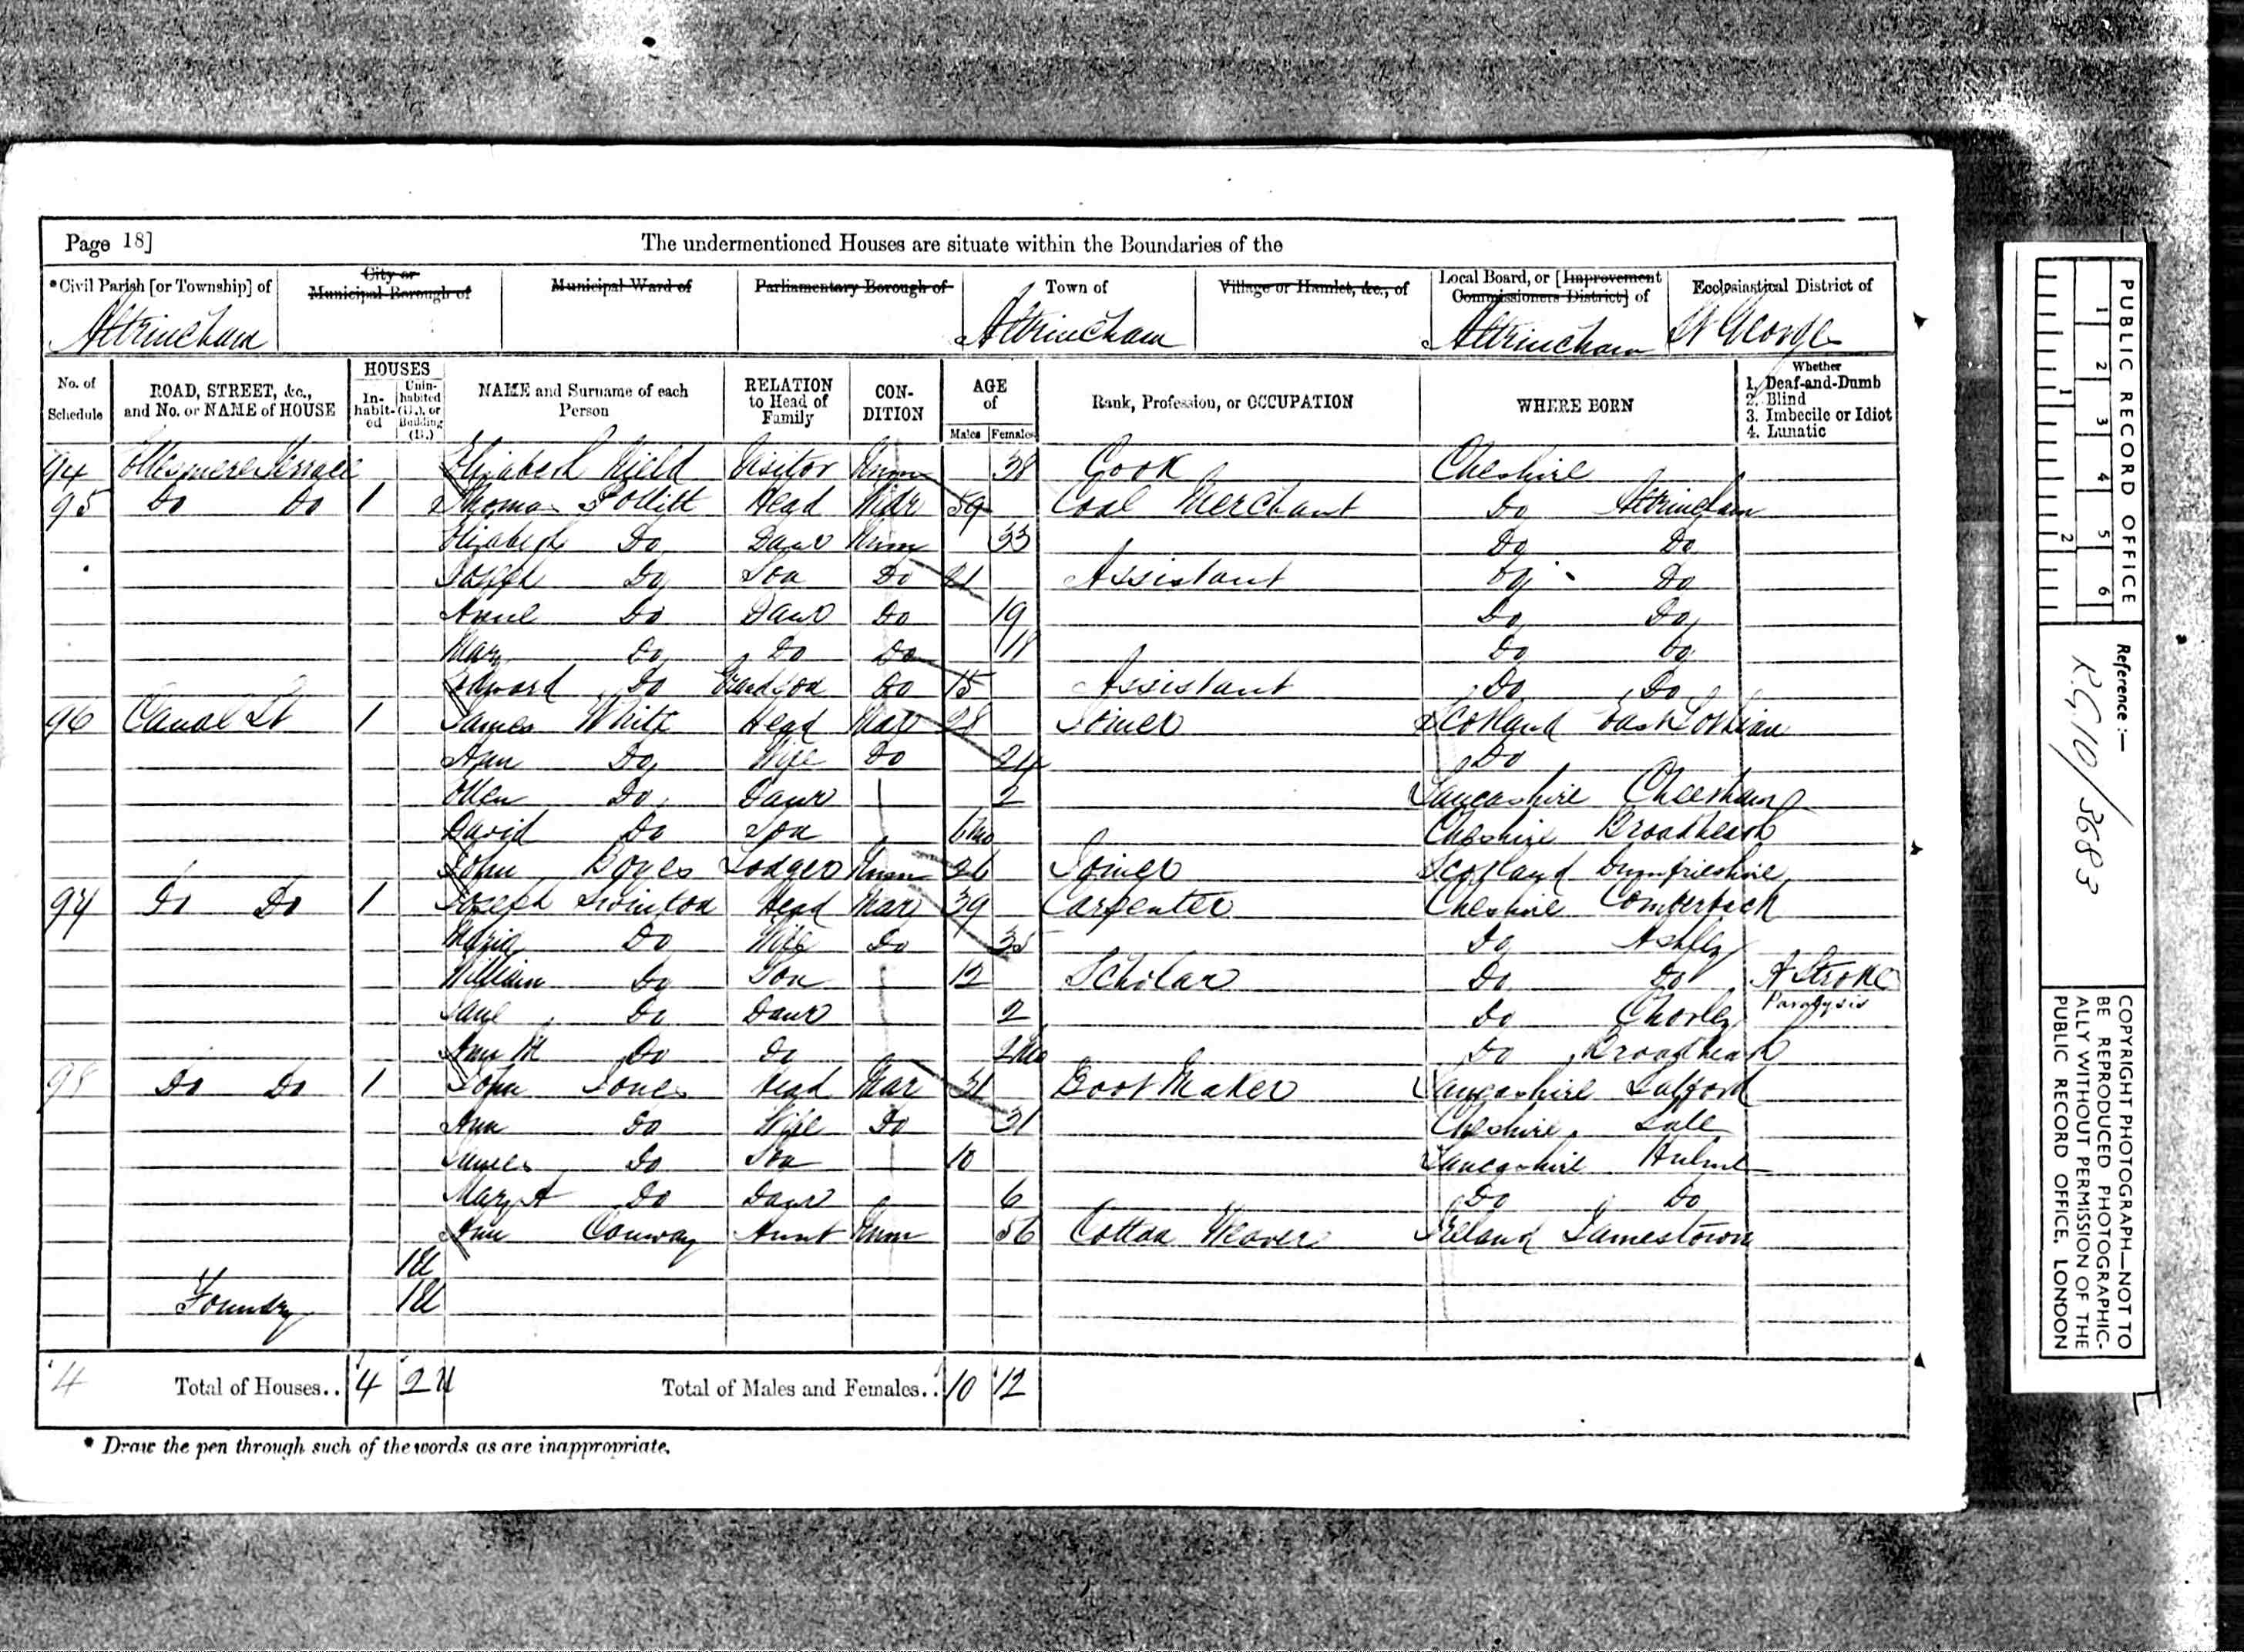 Page 18]
The undermentioned Houses are situate within the Boundaries of the
*Civil Parish [or Township] of
City or Municipal Borough of
Municipal Ward of
Parliamentary Borough of
Town of
Village or Hamlet, &c., of
Local Board, or [Improvement Commissioners District] of
Ecclesiastical District of
Altrincham Altrincham Altrincham St George
No. of Schedule
ROAD, STREET, &c., and No. or NAME of HOUSE
HOUSES
In-habit-ed
Unin-habited (U.), or Building (B.)
NAME and Surname of each Person
RELATION to Head of Family
CON-DITION
AGE of
Males Females
Rank, Profession, or OCCUPATION
WHERE BORN
Whether
1. Deaf-and-Dumb
2. Blind
3. Imbecile or Idiot
4. Lunatic
94 Ellesmere Terrace Elizabeth Nield Visitor Unm 38 Cook Cheshire
95 Do Do 1 Thomas Pollitt Head Widr 59 Coal Merchant Do Altrincham
Elizabeth Do Daur Unm 33 Do Do
Joseph Do Son Do 21 Assistant Do Do
Annie Do Daur Do 19 Do Do
Mary Do Do Do 18 Do Do
Edward Do Grandson Do 15 Assistant Do Do
96 Canal St 1 James White Head Mar 28 Joiner Scotland East Lothian
Ann Do Wife Do 24 Do
Ellen Do Daur 2 Lancashire Cheetham
David Do Son 6mo Cheshire Broadheath
John Boyes Lodger Unm 26 Joiner Scotland Dumfrieshire
97 Do Do 1 Joseph Swinton Head Mar 39 Carpenter Cheshire Comberbach
Maria Do Wife Do 35 Do Ashley
William Do Son 12 Scholar Do Do A Stroke
Paralysis
Jane Do Daur 2 Do Chorley
Ann M Do Do 2mo Do Broadheath
98 Do Do 1 John Jones Head Mar 31 Boot Maker Lancashire Salford
Ann Do Wife Do 31 Cheshire Sale
James Do Son 10 Lancashire Hulme
Mary A Do Daur 6 Do Do
Ann Conway Aunt Unm 56 Cotton Weaver Ireland Jamestown
1U
Foundry 1U
4 Total of Houses.. 4 2U Total of Males and Females.. 10 12
* Draw the pen through such of the words as are inappropriate.
PUBLIC RECORD OFFICE
1 2 3 4 5 6
1 2
Reference :-
R.G.10/3683
COPYRIGHT PHOTOGRAPH—NOT TO
BE REPRODUCED PHOTOGRAPHIC-
ALLY WITHOUT PERMISSION OF THE
PUBLIC RECORD OFFICE, LONDON